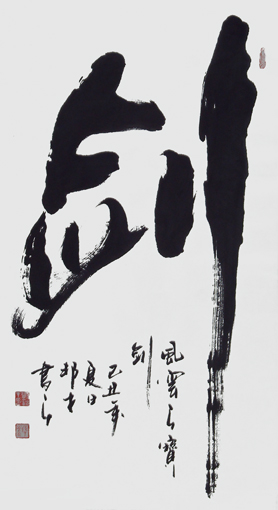 剑
風雲之寶
剑
己丑年
夏日
邦才
書之